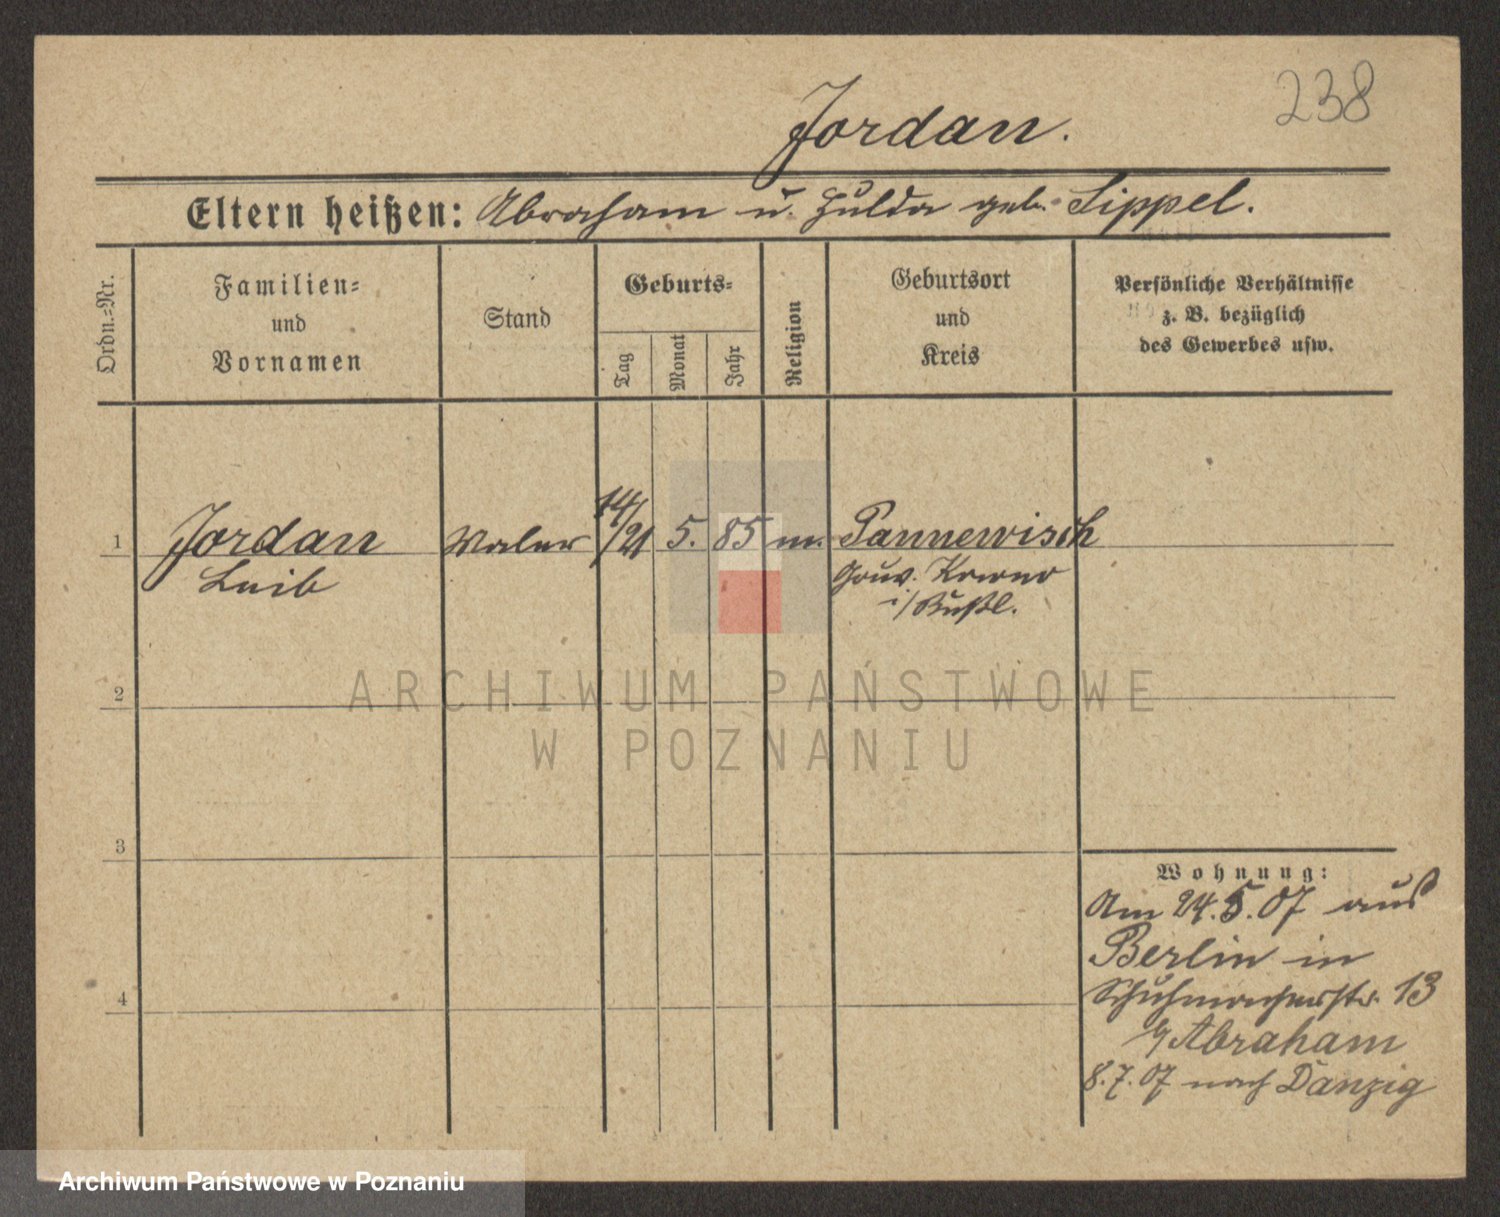 238
Jordan.
Eltern heißen: Abraham u. Hulda geb. Lippel.
Ordn.=Nr.
Familien=
und
Vornamen
Stand
Geburts=
Tag
Monat
Jahr
Religion
Geburtsort
und
Kreis
Persönliche Verhältnisse
z. B. bezüglich
des Gewerbes usw.
1 Jordan Maler 14/21 5. 85 m. Pannewisch
Leib Gouv. Kowno
i/Rußl.
2
3
4
Wohnung:
Am 24.5.07 aus
Berlin in
Schuhmacherstr. 13
b/Abraham
8.7.07 nach Danzig
ARCHIWUM PAŃSTWOWE
W POZNANIU
Archiwum Państwowe w Poznaniu